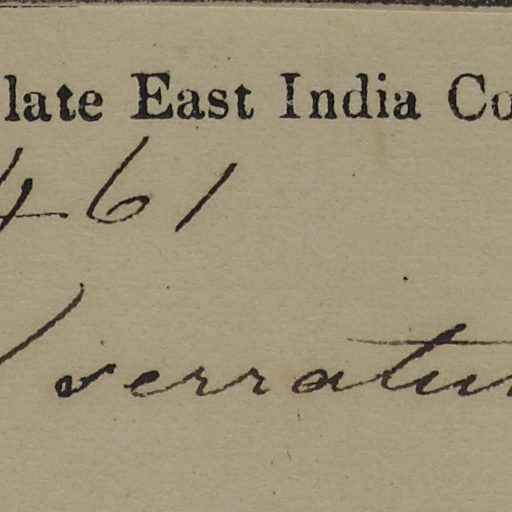 late East India Co
461
serratu